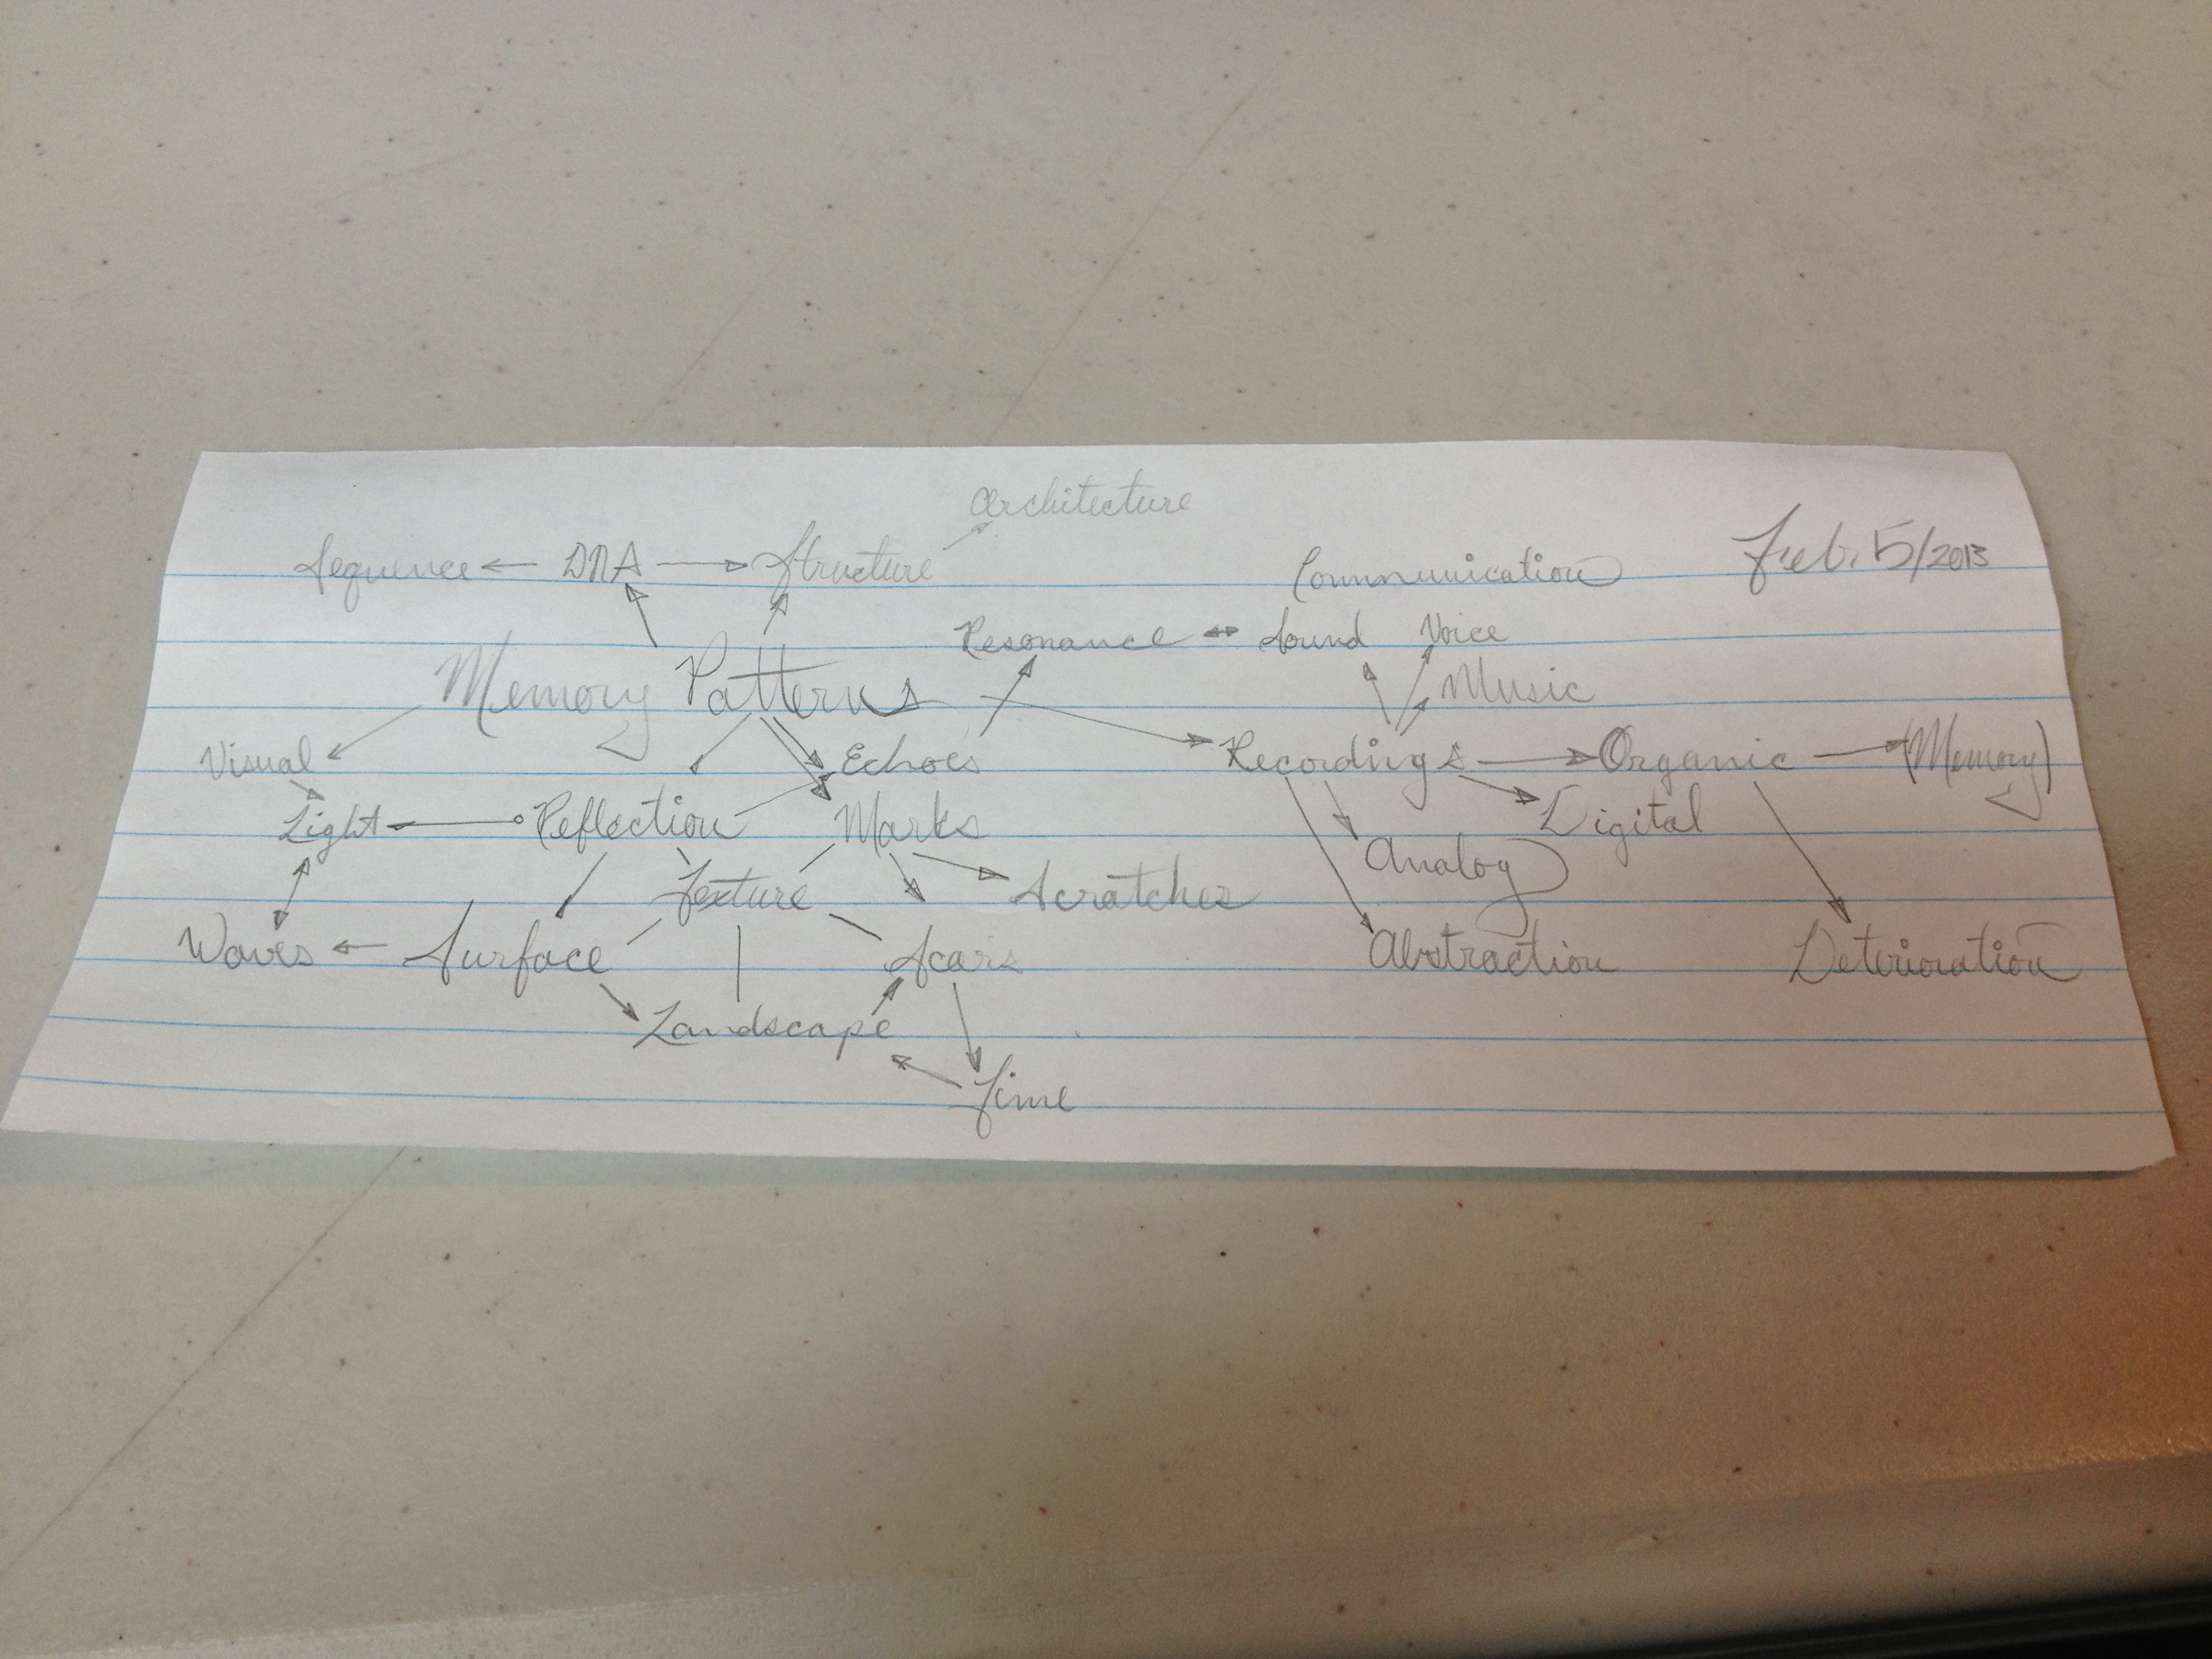 Architecture
Sequence ← DNA → Structure
Communication
Feb. 5/2013
Resonance ↔ Sound Voice
Memory Patterns
Music
Visual
Echoes
Recordings → Organic → (Memory)
Light Reflection Marks
Digital
Analog
Texture Scratches
Waves ← Surface Scars
Abstraction Deterioration
Landscape
Time